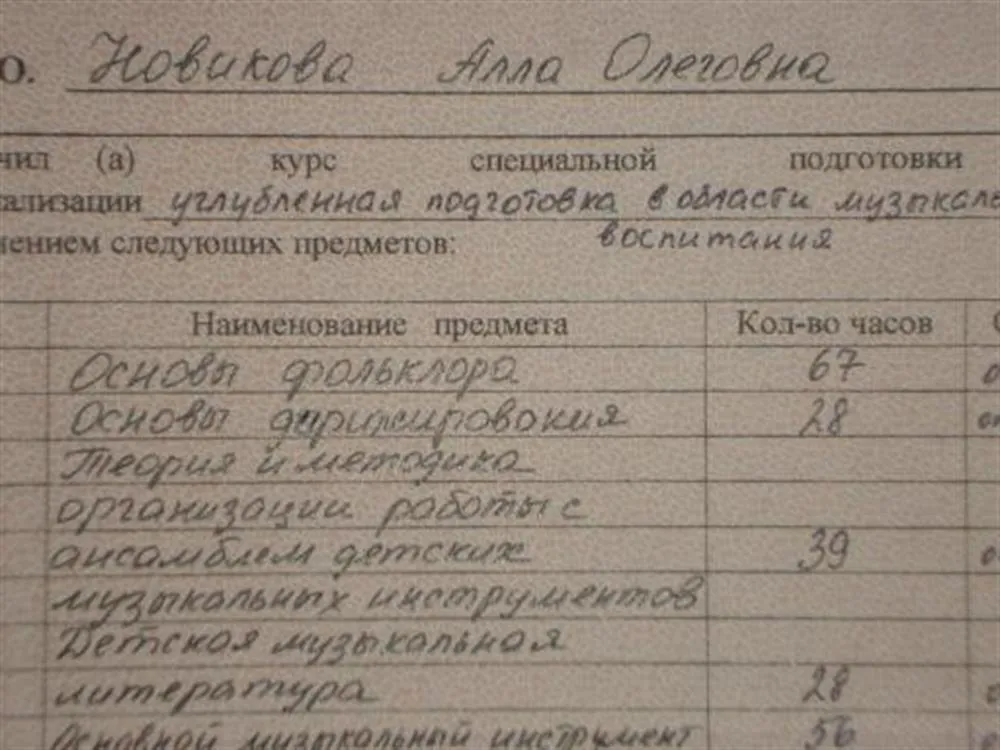 О. Новикова Алла Олеговна
чил (а) курс специальной подготовки
ализации углубленная подготовка в области музыкаль
нением следующих предметов: воспитания
Наименование предмета Кол-во часов
Основы фольклора 67
Основы дирижирования 28
Теория и методика
организации работы с
ансамблем детских 39
музыкальных инструментов
Детская музыкальная
литература 28
Основной музыкальный инструмент 56